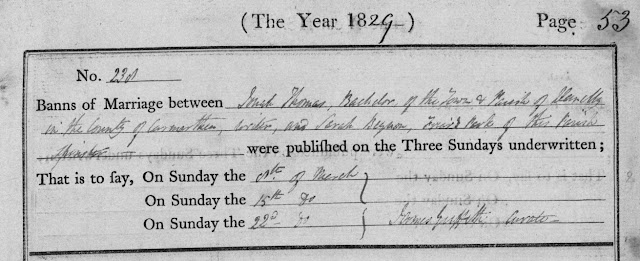 (The Year 1829) Page 53
No. 231
Banns of Marriage between Jonah Thomas, Bachelor of the Town & Parish of Llanelly
in the County of Carmarthen, writer, and Sarah Beynon, of this Parish
Spinster were publiſhed on the Three Sundays underwritten;
That is to ſay, On Sunday the 8th of March
On Sunday the 15th do
On Sunday the 22d do James Griffith Curate